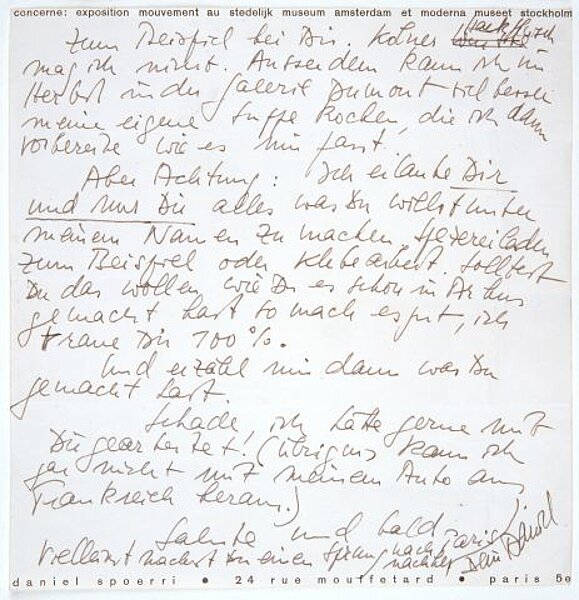 concerne: exposition mouvement au stedelijk museum amsterdam et moderna museet stockholm
Zum Beispiel bei Dir. Kölner
mag ich nicht. Ausserdem kann ich im
Herbst in der Galerie Dumont viel besser
meine eigene Suppe kochen, die ich dann
vorbereite wie es mir passt.
Aber Achtung: Ich erlaube Dir
und nur Dir alles was Du willst unter
meinem Namen zu machen. Spezereiladen
zum Beispiel oder Klebearbeit. Solltest
Du das wollen wie Du es schon in Arhus
gemacht hast so mach es gut, ich
traue Dir 100%.
Und erzähl mir dann was Du
gemacht hast.
Schade, ich hätte gerne mit
Dir gearbeitet! (übrigens kann ich
gar nicht mit meinem Auto aus
Frankreich heraus.)
Salute und bald
Vielleicht machst Du einen Sprung nach Paris
nachher
Dein Daniel
daniel spoerri • 24 rue mouffetard • paris 5e